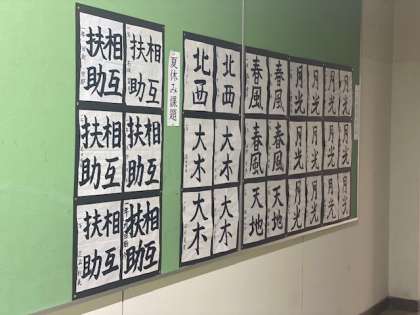 扶助 相互 扶助 相互
扶助 相互
扶助 相互
夏休み課題
北西 北西
大木 大木
大木 大木
春風 春風 月光 月光 月光 月光
春風 春風 月光 月光 月光 月光
天地 天地 月光 月光 月光 月光